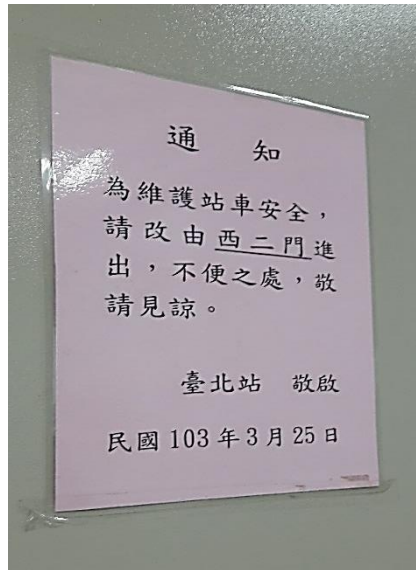 通 知
為維護站車安全，
請改由西二門進
出，不便之處，敬
請見諒。
臺北站 敬啟
民國 103 年 3 月 25 日